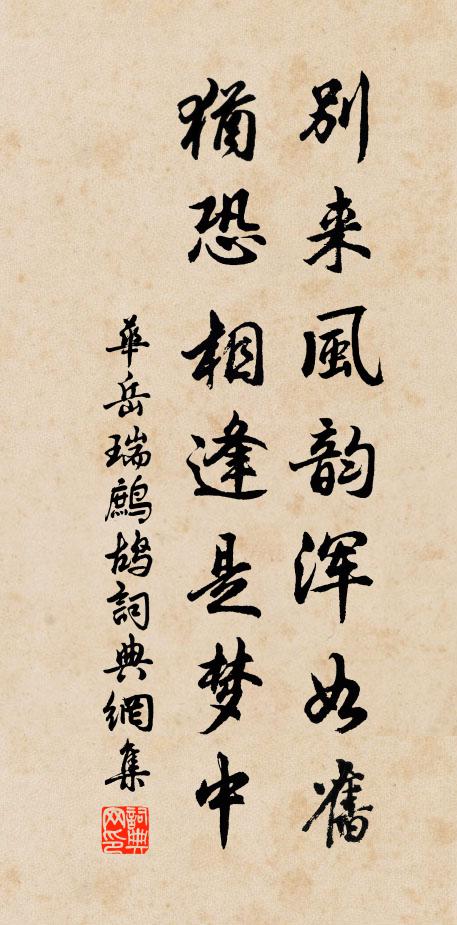 别来風韵浑如舊
猶恐相逢是梦中
華岳瑞鷓鴣詞典網集
詞典网印